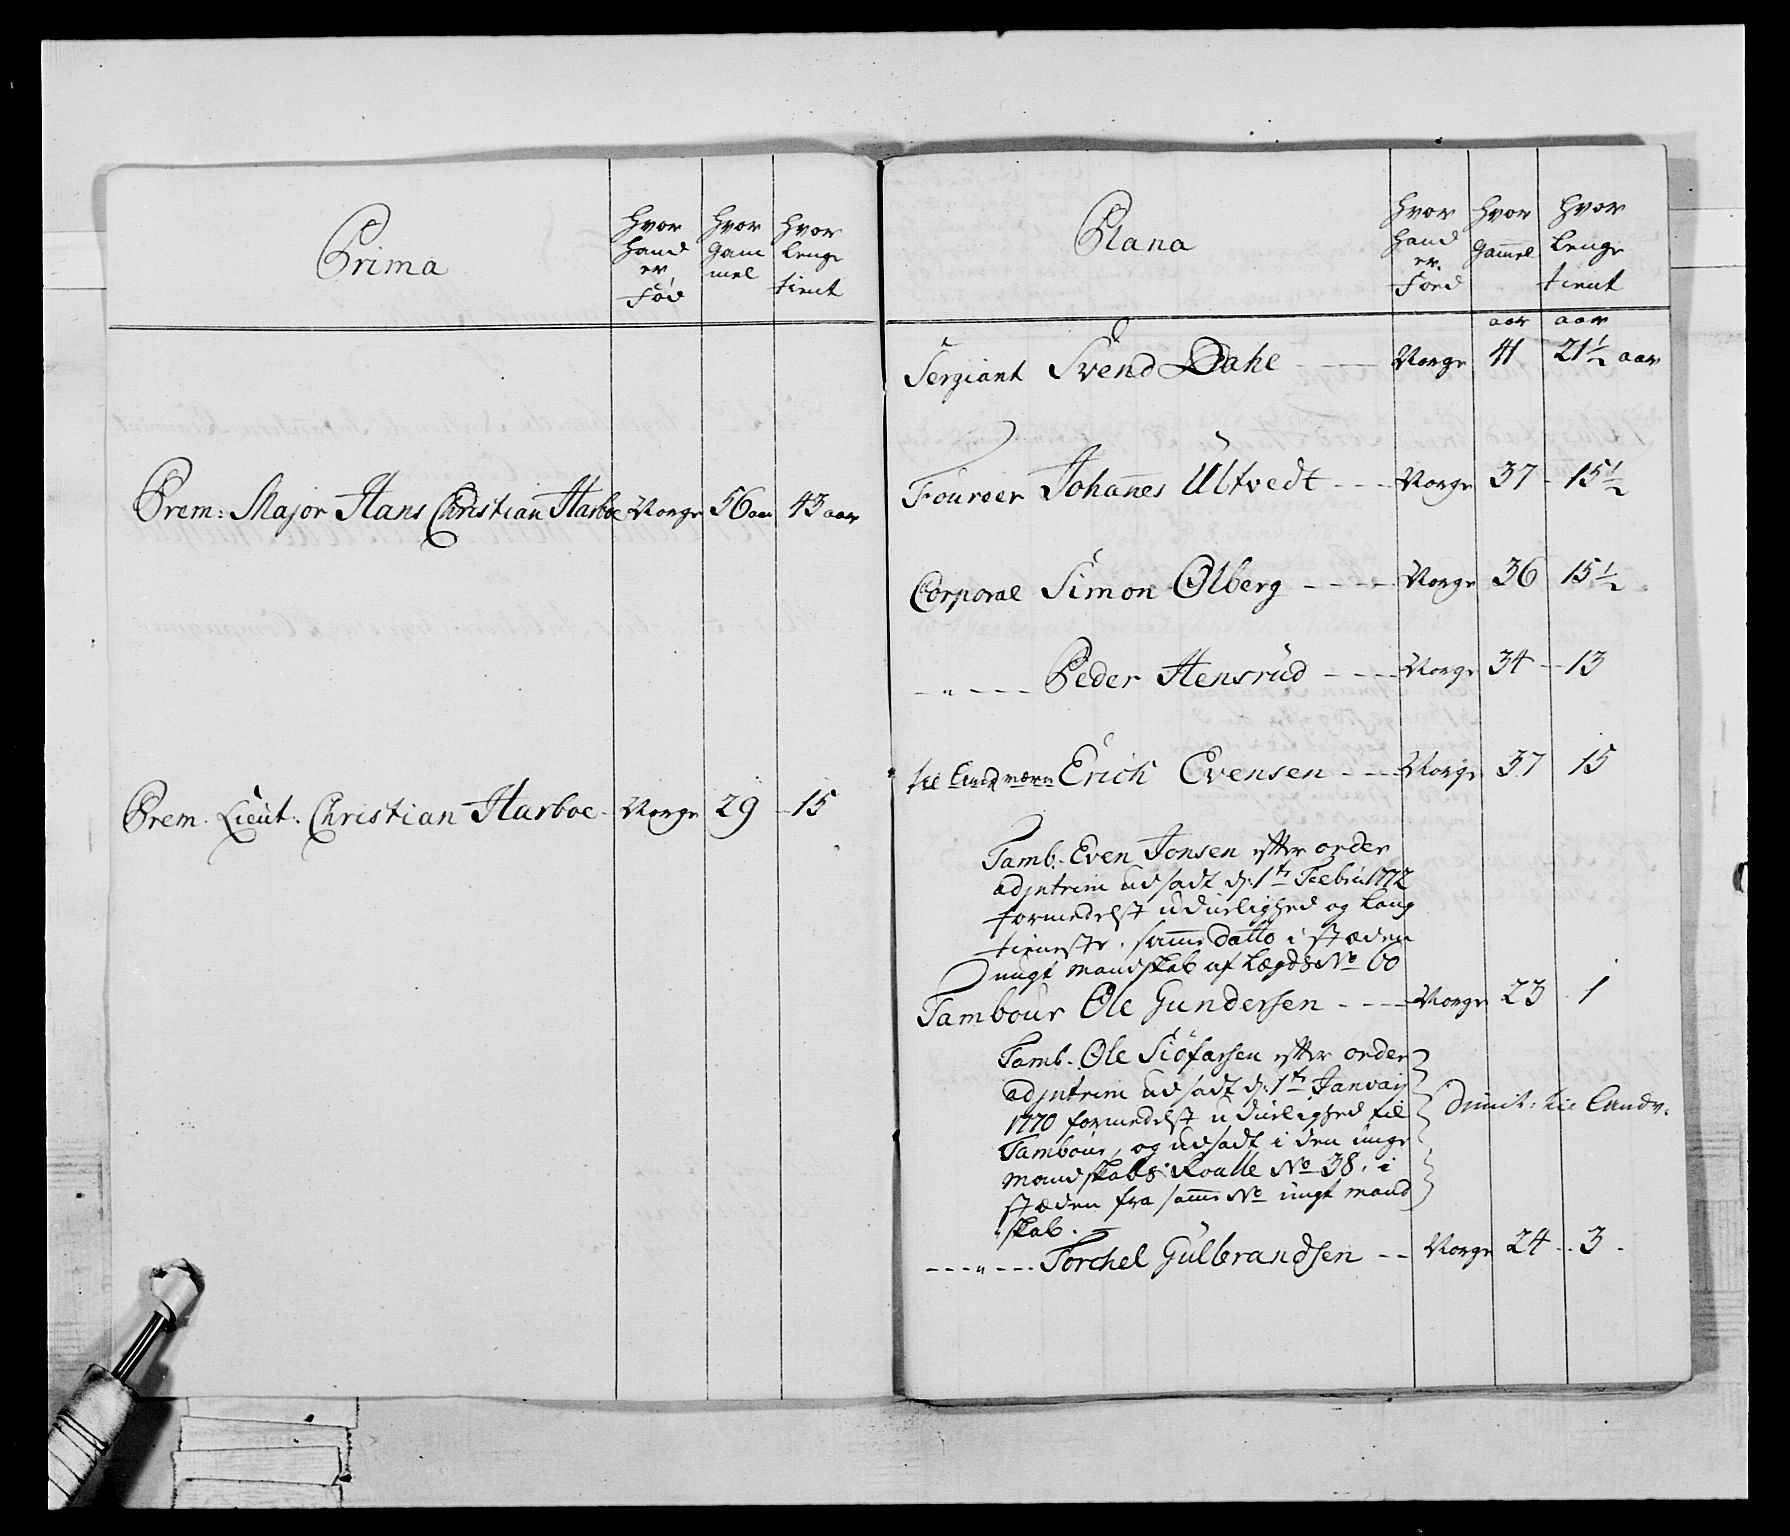 Prima
Hvor
hand
er
Fød
Hvor
gam
mel
Hvor
lenge
tient
Prem: Major Hans Christian Harboe Norge 56 aar 43 aar
Prem. Lieut: Christian Harboe Norge 29 15
Plana
Hvor
hand
er
Fød
Hvor
gammel
Hvor
lenge
tient
aar aar
Sergiant Svend Dahl Norge 41 21½ aar
Foureer Johannes Ultvedt Norge 37 15½
Corporal Simon Olberg Norge 36 15½
" Peder Hensrud Norge 34 13
til Landværn Erich Evensen Norge 37 15
Tamb. Even Jonsen efter order
adjnterim udsadt d: 1te Feebru 1772
formedelst uduelighed og lang
tieneste. samme Datto i stæden
ungt mandskab af Lægds No 60
Tambour Ole Gundersen Norge 23 1
Tamb. Ole Siøfarsen efter order
adjnterim udsadt d: 1te Januarj
1770 formedelst uduelighed til
Tambour, og udsadt i den unge
mandskabs Roulle No 38. i
stæden fra samme No ungt mand
skab.
dimit: til Landv.
" Torchel Gulbrandsen Norge 24 3